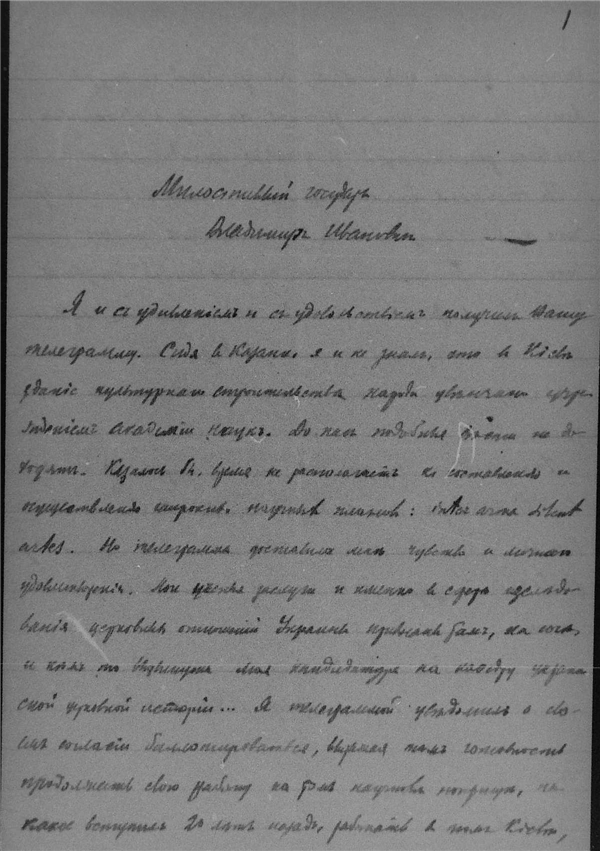 1
Милостивый государь
Владимиръ Ивановичъ
Я и съ удивленіемъ и съ удовольствіемъ получилъ Вашу
телеграмму. Сидя в Казани, я и не зналъ, что в Кіевѣ
зданіе культурнаго строительства народа увѣнчано учре-
жденіемъ академіи наукъ. До насъ подобныя не до-
ходятъ. Казалось бы, время не располагаетъ къ составленію и
осуществленію широкихъ научныхъ плановъ: inter arma silent
artes. Но телеграмма доставила мнѣ чувство и личнаго
удовлетворенія. Мои ученыя заслуги и именно в сферѣ изслѣдо-
ванія церковныхъ отношеній Украины признаны тамъ,
и кѣмъ то выдвинута моя кандидатура на кафедру украин-
ской церковной исторіи... Я телеграммой увѣдомилъ о сво-
емъ согласіи баллотироваться, выражая тѣмъ готовность
продолжать свою работу на томъ научномъ поприщѣ, на
какое вступилъ 20 лѣтъ назадъ, работать в томъ Кіевѣ,